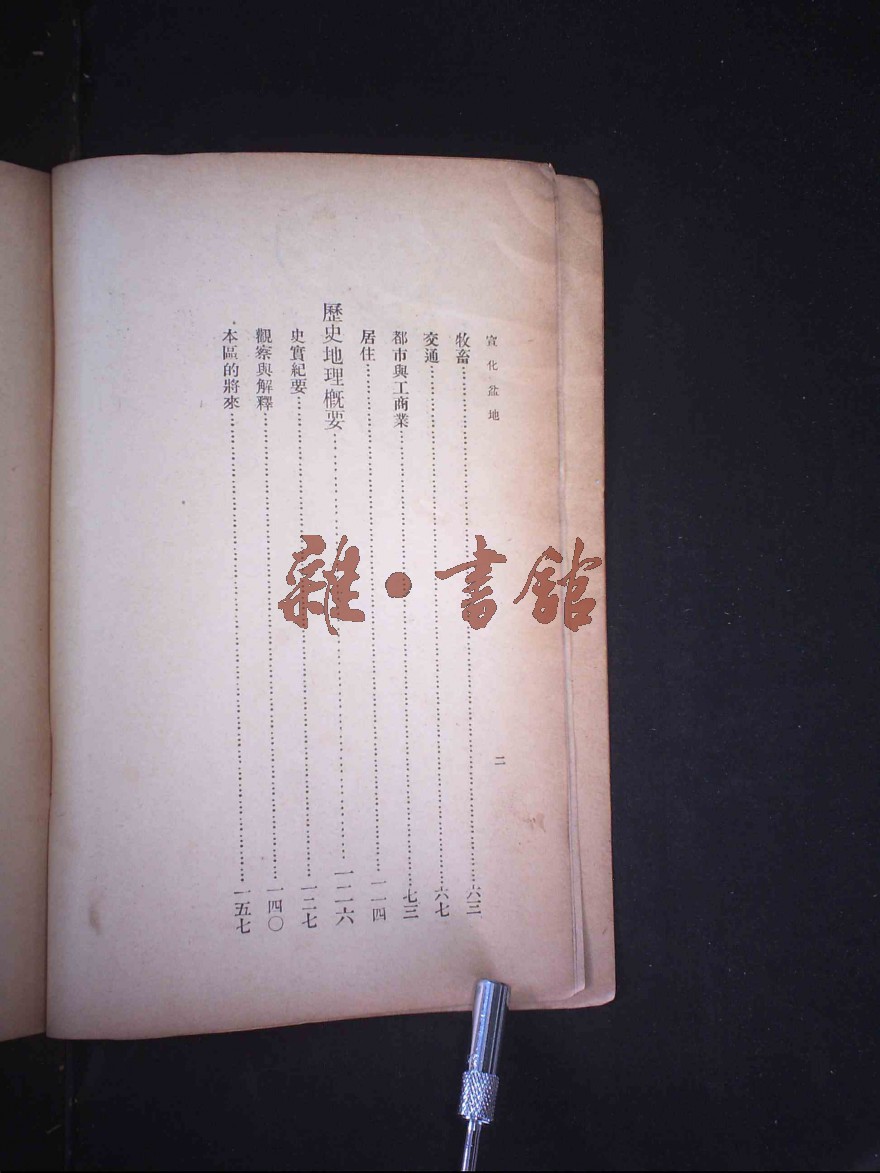 宣化盆地
二
牧畜……六三
交通……六七
都市與工商業……七三
居住……一一四
歷史地理概要……一二六
史實紀要……一二七
觀察與解釋……一四〇
本區的將來……一五七
雜·書館